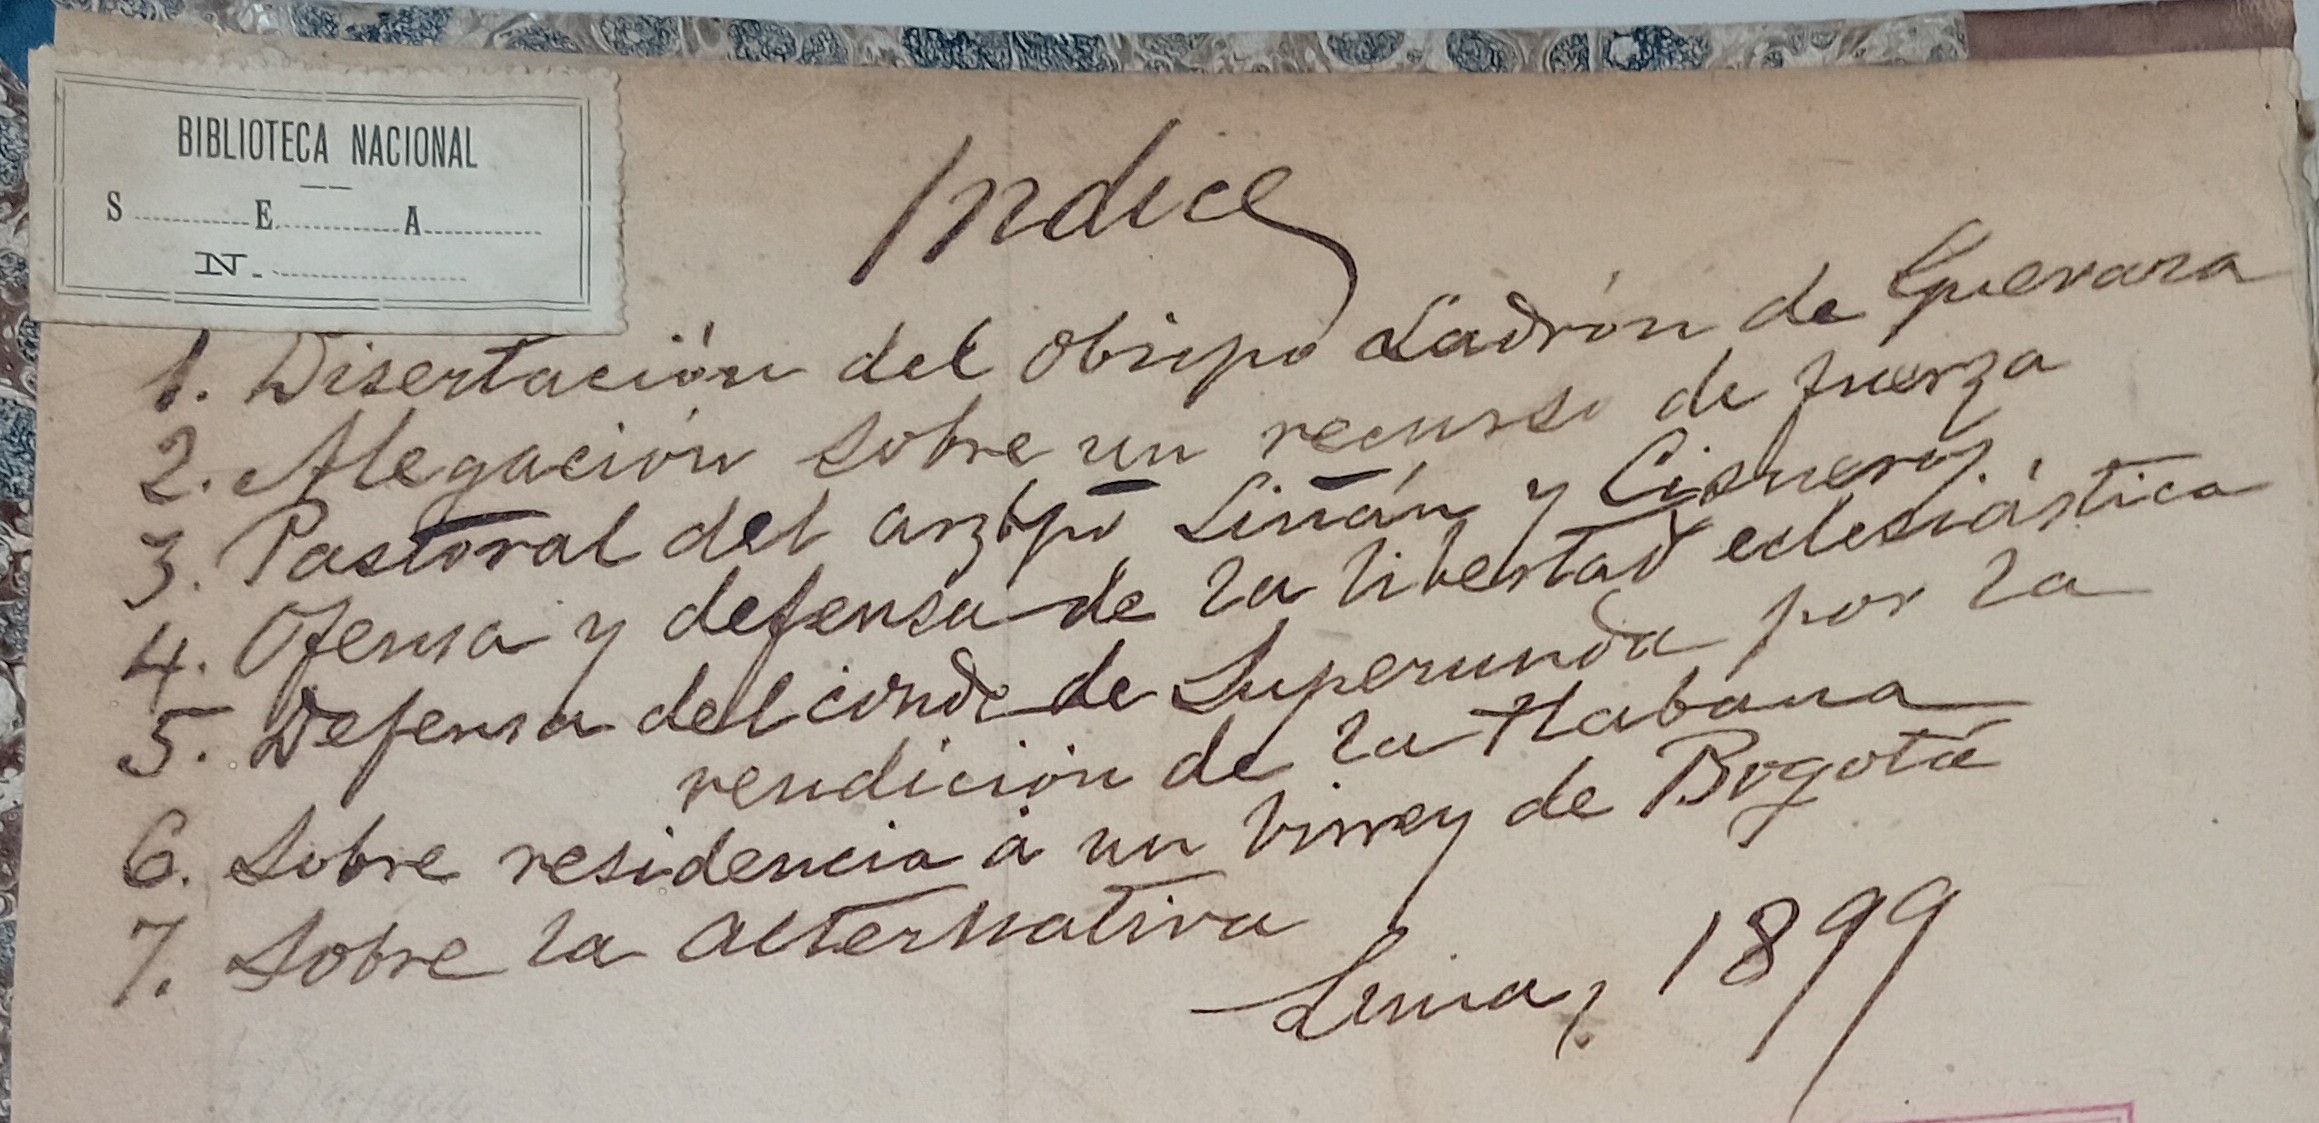 BIBLIOTECA NACIONAL
S E A
N.
Indice
1. Disertación del obispo Ladrón de Guevara
2. Alegación sobre un recurso de fuerza
3. Pastoral del arzbpo Liñán y Cisneros
4. Ofensa y defensa de la libertad eclesiástica
5. Defensa del conde de Superunda por la
rendición de la Habana
6. Sobre residencia á un virrey de Bogotá
7. Sobre la alternativa
Lima, 1899